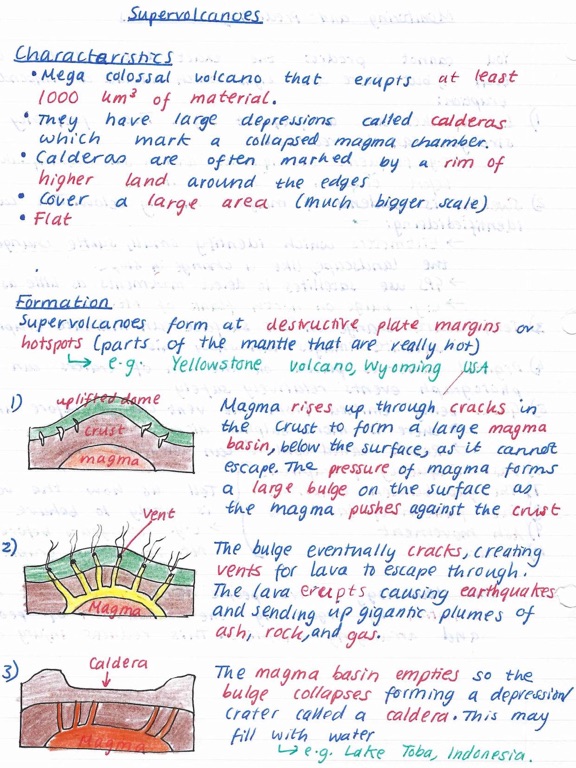 Supervolcanoes
Characteristics
• Mega colossal volcano that erupts at least
1000 km³ of material.
• They have large depressions called calderas
which mark a collapsed magma chamber.
• Calderas are often marked by a rim of
higher land around the edges
• Cover a large area (much bigger scale)
• Flat
Formation
Supervolcanoes form at destructive plate margins or
hotspots (parts of the mantle that are really hot)
↳ e.g. Yellowstone volcano, Wyoming USA
1)
uplifted dome
crust
magma
Magma rises up through cracks in
the crust to form a large magma
basin, below the surface, as it cannot
escape. The pressure of magma forms
a large bulge on the surface as
the magma pushes against the crust
2)
vent
Magma
The bulge eventually cracks, creating
vents for lava to escape through.
The lava erupts causing earthquakes
and sending up gigantic plumes of
ash, rock, and gas.
3)
Caldera
Magma
The magma basin empties so the
bulge collapses forming a depression/
crater called a caldera. This may
fill with water
↳ e.g. Lake Toba, Indonesia.